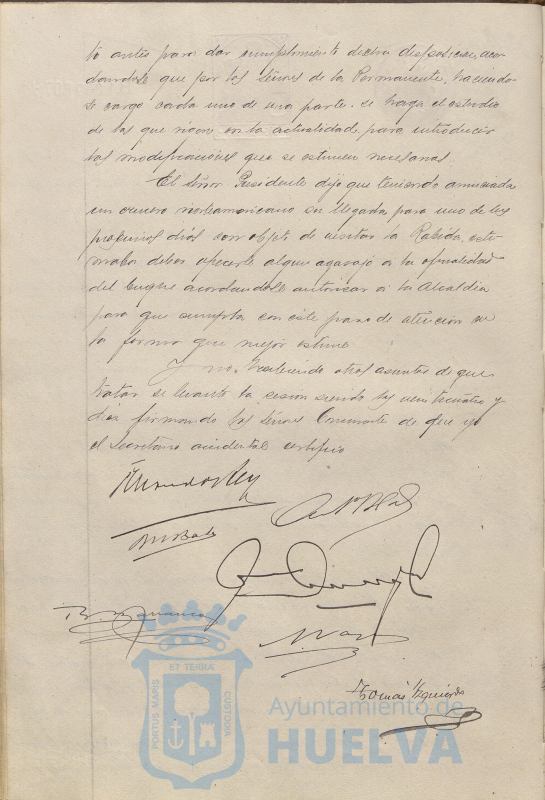 to antes para dar cumplimiento dicha disposicion, acor
dandose que por los Señores de la Permanente, haciendo
se cargo cada uno de una parte, se haga el estudio
de las que rigen en la actualidad para introducir
las modificaciones que se estimen necesarias
El Señor Presidente dijo que teniendo anunciada
un crucero norteamericano su llegada para uno de los
proximos dias con objeto de visitar la Rabida, esti
maba deber ofrecerle algun agasajo a la oficialidad
del buque acordandose autorizar a la Alcaldia
para que cumpla con este paso de atencion en
la forma que mejor estime
Y no habiendo otros asuntos de que
tratar se levanto la sesion siendo las veinticuatro y
diez firmando los Señores Concurrentes de que yo
el Secretario accidental certifico
Tomás Izquierdo
PORTUS MARIS ET TERRÆ CUSTODIA
Ayuntamiento de
HUELVA